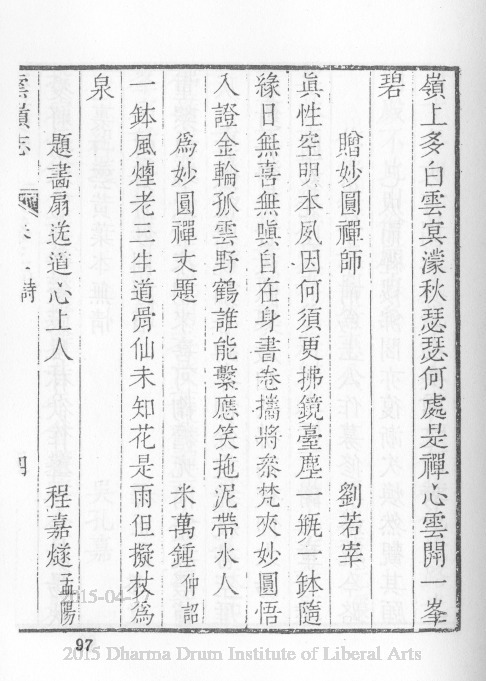 嶺上多白雲冥濛秋瑟瑟何處是禪心雲開一峯
碧
贈妙圓禪師 劉若宰
眞性空明本夙因何須更拂鏡臺塵一瓶一鉢隨
緣日無喜無嗔自在身書卷擕將叅梵夾妙圓悟
入證金輪孤雲野鶴誰能繫應笑拖泥帶水人
爲妙圓禪丈題 米萬鍾仲詔
一鉢風煙老三生道骨仙未知花是雨但擬杖爲
泉
題畵扇送道心上人 程嘉燧孟陽
雲嶺志 詩 四
97
2015-04-
2015 Dharma Drum Institute of Liberal Arts